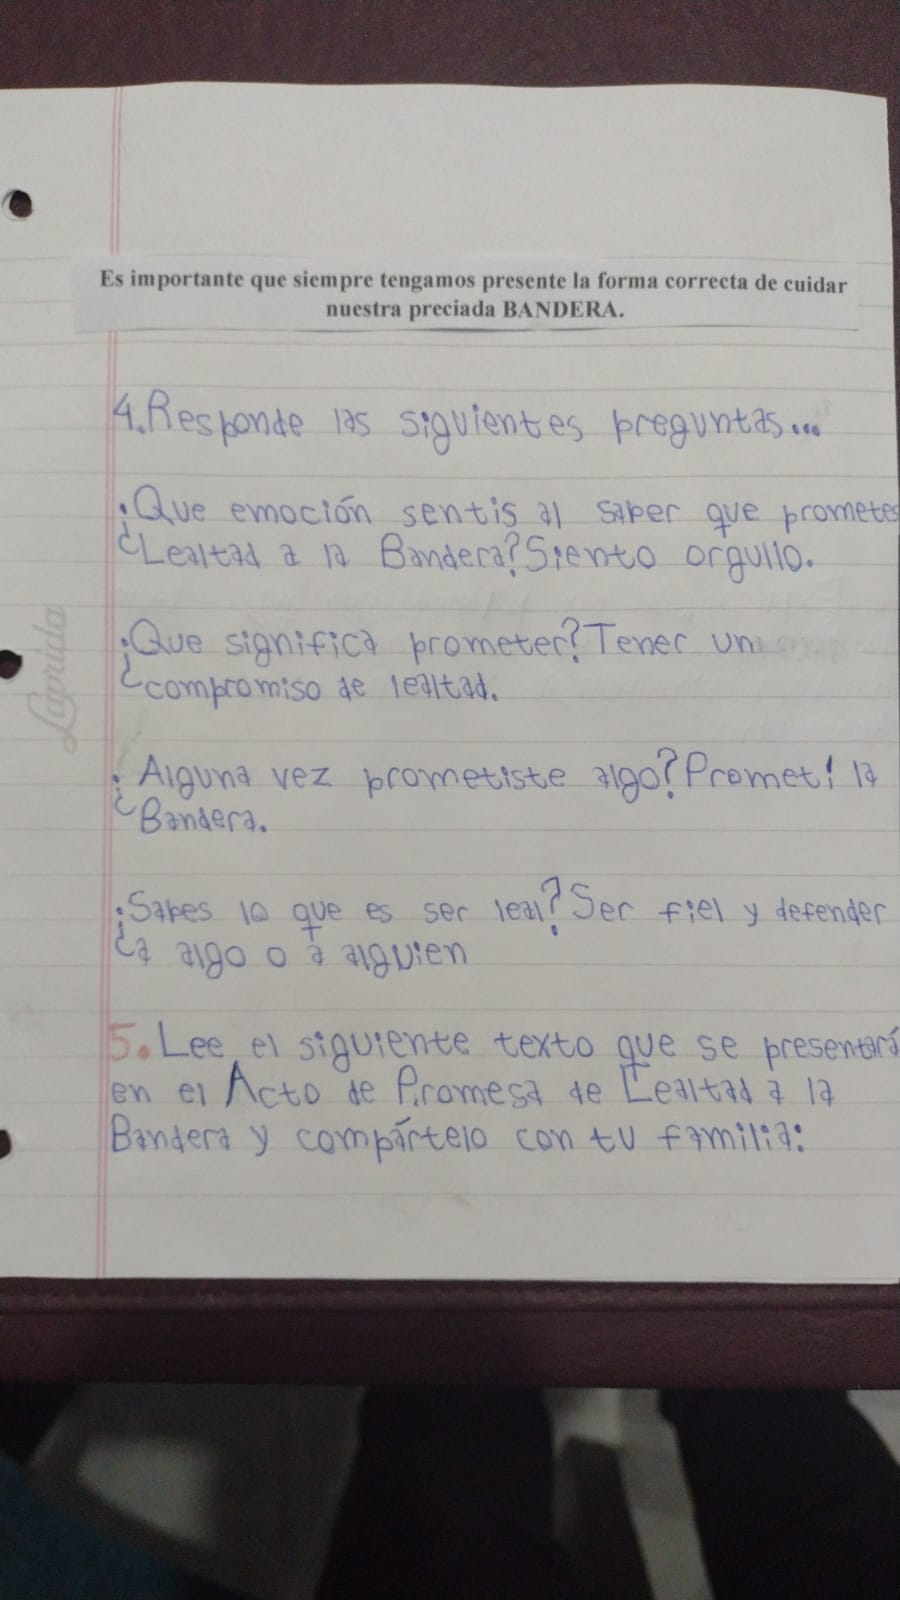 Es importante que siempre tengamos presente la forma correcta de cuidar
nuestra preciada BANDERA.
4. Responde las siguientes preguntas...
¿Que emoción sentis al saber que prometes
Lealtad a la Bandera? Siento orgullo.
¿Que significa prometer? Tener un
compromiso de lealtad.
Laprida
¿Alguna vez prometiste algo? Prometí la
Bandera.
¿Sabes lo que es ser leal? Ser fiel y defender
a algo o a alguien
5. Lee el siguiente texto que se presentará
en el Acto de Promesa de Lealtad a la
Bandera y compártelo con tu familia: